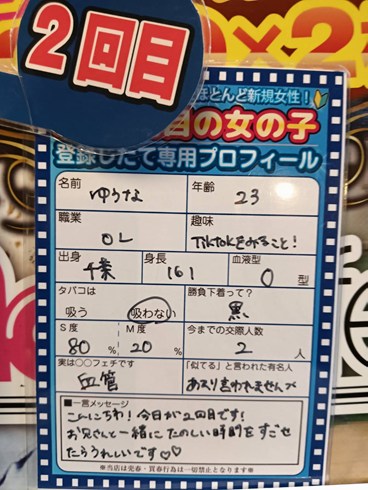 2回目
ほとんど新規女性!
目の女の子
登録したて専用プロフィール
名前 ゆうな 年齢 23
職業 OL 趣味 TikTokをみること!
出身 千葉 身長 161 血液型 O 型
タバコは 吸う 吸わない 勝負下着って? 黒
S度 80 % M度 20 % 今までの交際人数 2 人
実は○○フェチです 血管 「似てる」と言われた有名人 あまり言われませんが
■一言メッセージ
こんにちわ!今日が2回目です!
お兄さんと一緒にたのしい時間をすごせ
たらうれしいです♡♡
※当店は売春・買春行為は一切禁止となります※